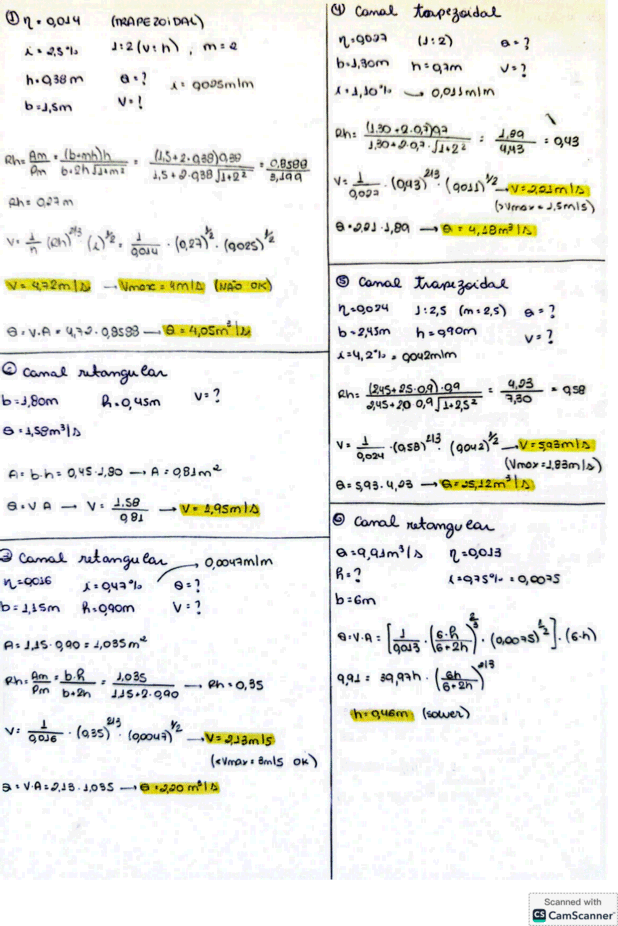 ① η = 0,014 (TRAPEZOIDAL)
i = 2,5% 1:2 (v:h), m = 2
h = 0,38m Q = ? i = 0,025m/m
b = 1,5m V = ?
Rh = Am/Pm = (b+mh)h/(b+2h√(1+m²)) = (1,5+2·0,38)0,38/(1,5+2·0,38√(1+2²)) = 0,8588/3,199
Rh = 0,27m
V = 1/n (Rh)^2/3 (i)^1/2 = 1/0,014 · (0,27)^2/3 · (0,025)^1/2
V = 4,72m/s → Vmax = 4m/s (NÃO OK)
Q = V·A = 4,72·0,8588 → Q = 4,05m³/s
② Canal retangular
b = 1,80m h = 0,45m V = ?
Q = 1,58m³/s
A = b·h = 0,45·1,80 → A = 0,81m²
Q = V A → V = 1,58/0,81 → V = 1,95m/s
③ Canal retangular
η = 0,016 i = 0,47% → 0,0047m/m Q = ?
b = 1,15m h = 0,90m V = ?
A = 1,15·0,90 = 1,035m²
Rh = Am/Pm = b·h/(b+2h) = 1,035/(1,15+2·0,90) → Rh = 0,35
V = 1/0,016 · (0,35)^2/3 · (0,0047)^1/2 → V = 2,13m/s
(<Vmax = 3m/s OK)
Q = V·A = 2,13·1,035 → Q = 2,20 m³/s
④ Canal trapezoidal
η = 0,027 (1:2) Q = ?
b = 1,30m h = 0,7m V = ?
i = 1,10% → 0,011m/m
Rh = (1,30+2·0,7)0,7/(1,30+2·0,7·√(1+2²)) = 1,89/4,43 = 0,43
V = 1/0,027 · (0,43)^2/3 · (0,011)^1/2 → V = 2,21m/s
(>Vmax = 1,5m/s)
Q = 2,21·1,89 → Q = 4,18m³/s
⑤ Canal trapezoidal
η = 0,024 1:2,5 (m = 2,5) Q = ?
b = 2,45m h = 0,90m V = ?
i = 4,2% = 0,042m/m
Rh = (2,45+2,5·0,9)·0,9/(2,45+2,0·0,9√(1+2,5²)) = 4,23/7,30 = 0,58
V = 1/0,024 · (0,58)^2/3 · (0,042)^1/2 → V = 5,93m/s
(Vmax = 1,83m/s)
Q = 5,93·4,23 → Q = 25,12m³/s
⑥ Canal retangular
Q = 9,91m³/s η = 0,013
h = ? i = 0,75% = 0,0075
b = 6m
Q = V·A = [1/0,013 · (6·h/(6+2h))^2/3 · (0,0075)^1/2]·(6·h)
9,91 = 39,97h · (6h/(6+2h))^2/3
h = 0,46m (solver)
Scanned with
CS CamScanner